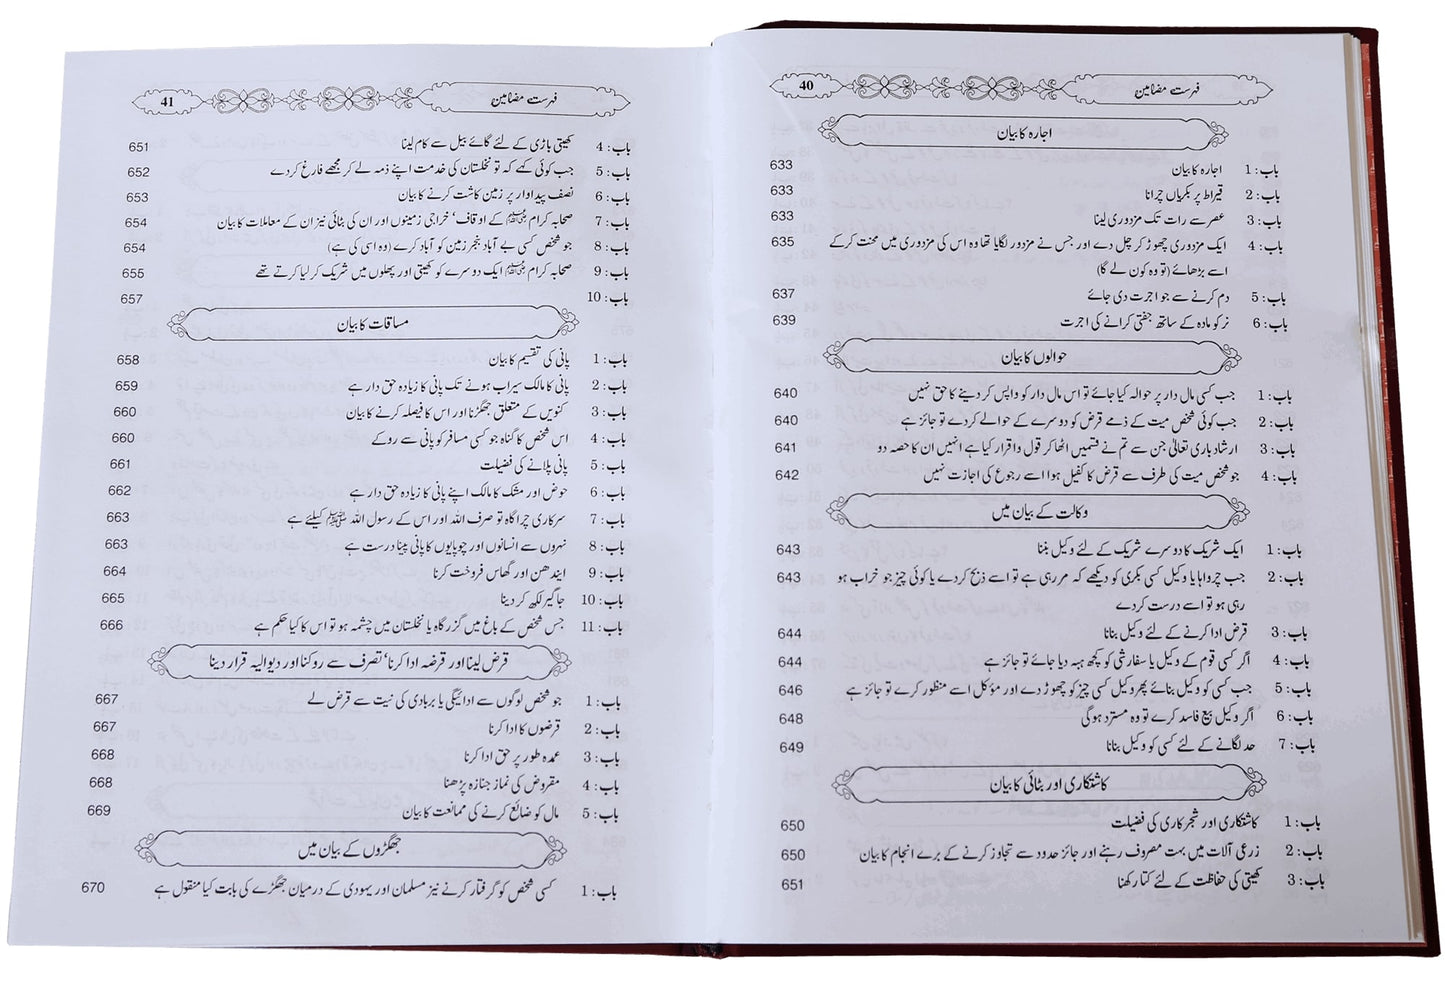 فہرست مضامین 40
اجارہ کا بیان
باب: 1 اجارہ کا بیان 633
باب: 2 قیراط پر بکریاں چرانا 633
باب: 3 عصر سے رات تک مزدوری لینا 633
باب: 4 ایک مزدوری چھوڑ کر چل دے اور جس نے مزدور لگایا تھا وہ اس کی مزدوری میں محنت کر کے 635
اسے بڑھائے (تو وہ کون لے گا)
باب: 5 دم کرنے سے جو اجرت دی جائے 637
باب: 6 نر کو مادہ کے ساتھ جفتی کرانے کی اجرت 639
حوالوں کا بیان
باب: 1 جب کسی مال دار پر حوالہ کیا جائے تو اس مال دار کو واپس کر دینے کا حق نہیں 640
باب: 2 جب کوئی شخص میت کے ذمے قرض کو دوسرے کے حوالے کر دے تو جائز ہے 640
باب: 3 ارشاد باری تعالیٰ جن سے تم نے قسمیں اٹھا کر قول و اقرار کیا ہے انہیں ان کا حصہ دو 641
باب: 4 جو شخص میت کی طرف سے قرض کا کفیل ہوا اسے رجوع کی اجازت نہیں 642
وکالت کے بیان میں
باب: 1 ایک شریک کا دوسرے شریک کے لئے وکیل بننا 643
باب: 2 جب چرواہا یا وکیل کسی بکری کو دیکھے کہ مر رہی ہے تو اسے ذبح کر دے یا کوئی چیز جو خراب ہو 643
رہی ہو تو اسے درست کر دے
باب: 3 قرض ادا کرنے کے لئے وکیل بنانا 644
باب: 4 اگر کسی قوم کے وکیل یا سفارشی کو کچھ ہبہ دیا جائے تو جائز ہے 644
باب: 5 جب کسی کو وکیل بنائے پھر وکیل کسی چیز کو چھوڑ دے اور مؤکل اسے منظور کرے تو جائز ہے 646
باب: 6 اگر وکیل بیع فاسد کرے تو وہ مسترد ہوگی 648
باب: 7 حد لگانے کے لئے کسی کو وکیل بنانا 649
کاشتکاری اور بٹائی کا بیان
باب: 1 کاشتکاری اور شجرکاری کی فضیلت 650
باب: 2 زرعی آلات میں بہت مصروف رہنے اور جائز حدود سے تجاوز کرنے کے برے انجام کا بیان 650
باب: 3 کھیتی کی حفاظت کے لئے کتا رکھنا 651
فہرست مضامین 41
باب: 4 کھیتی باڑی کے لئے گائے بیل سے کام لینا 651
باب: 5 جب کوئی کہے کہ تو نخلستان کی خدمت اپنے ذمہ لے کر مجھے فارغ کر دے 652
باب: 6 نصف پیداوار پر زمین کاشت کرنے کا بیان 653
باب: 7 صحابہ کرام ﷺ کے اوقاف، خراجی زمینوں اور ان کی بٹائی نیز ان کے معاملات کا بیان 654
باب: 8 جو شخص کسی بے آباد بنجر زمین کو آباد کرے (وہ اسی کی ہے) 654
باب: 9 صحابہ کرام ﷺ ایک دوسرے کو کھیتی اور پھلوں میں شریک کر لیا کرتے تھے 655
باب: 10 657
مساقات کا بیان
باب: 1 پانی کی تقسیم کا بیان 658
باب: 2 پانی کا مالک سیراب ہونے تک پانی کا زیادہ حق دار ہے 659
باب: 3 کنویں کے متعلق جھگڑنا اور اس کا فیصلہ کرنے کا بیان 660
باب: 4 اس شخص کا گناہ جو کسی مسافر کو پانی سے روکے 660
باب: 5 پانی پلانے کی فضیلت 661
باب: 6 حوض اور مشک کا مالک اپنے پانی کا زیادہ حق دار ہے 662
باب: 7 سرکاری چراگاہ تو صرف اللہ اور اس کے رسول اللہ ﷺ کیلئے ہے 663
باب: 8 نہروں سے انسانوں اور چوپایوں کا پانی پینا درست ہے 663
باب: 9 ایندھن اور گھاس فروخت کرنا 664
باب: 10 جاگیر لکھ کر دینا 665
باب: 11 جس شخص کے باغ میں گزرگاہ یا نخلستان میں چشمہ ہو تو اس کا کیا حکم ہے 666
قرض لینا اور قرضہ ادا کرنا، تصرف سے روکنا اور دیوالیہ قرار دینا
باب: 1 جو شخص لوگوں سے ادائیگی یا بربادی کی نیت سے قرض لے 667
باب: 2 قرضوں کا ادا کرنا 667
باب: 3 عمدہ طور پر حق ادا کرنا 668
باب: 4 مقروض کی نماز جنازہ پڑھنا 668
باب: 5 مال کو ضائع کرنے کی ممانعت کا بیان 669
جھگڑوں کے بیان میں
باب: 1 کسی شخص کو گرفتار کرنے نیز مسلمان اور یہودی کے درمیان جھگڑے کی بابت کیا منقول ہے 670